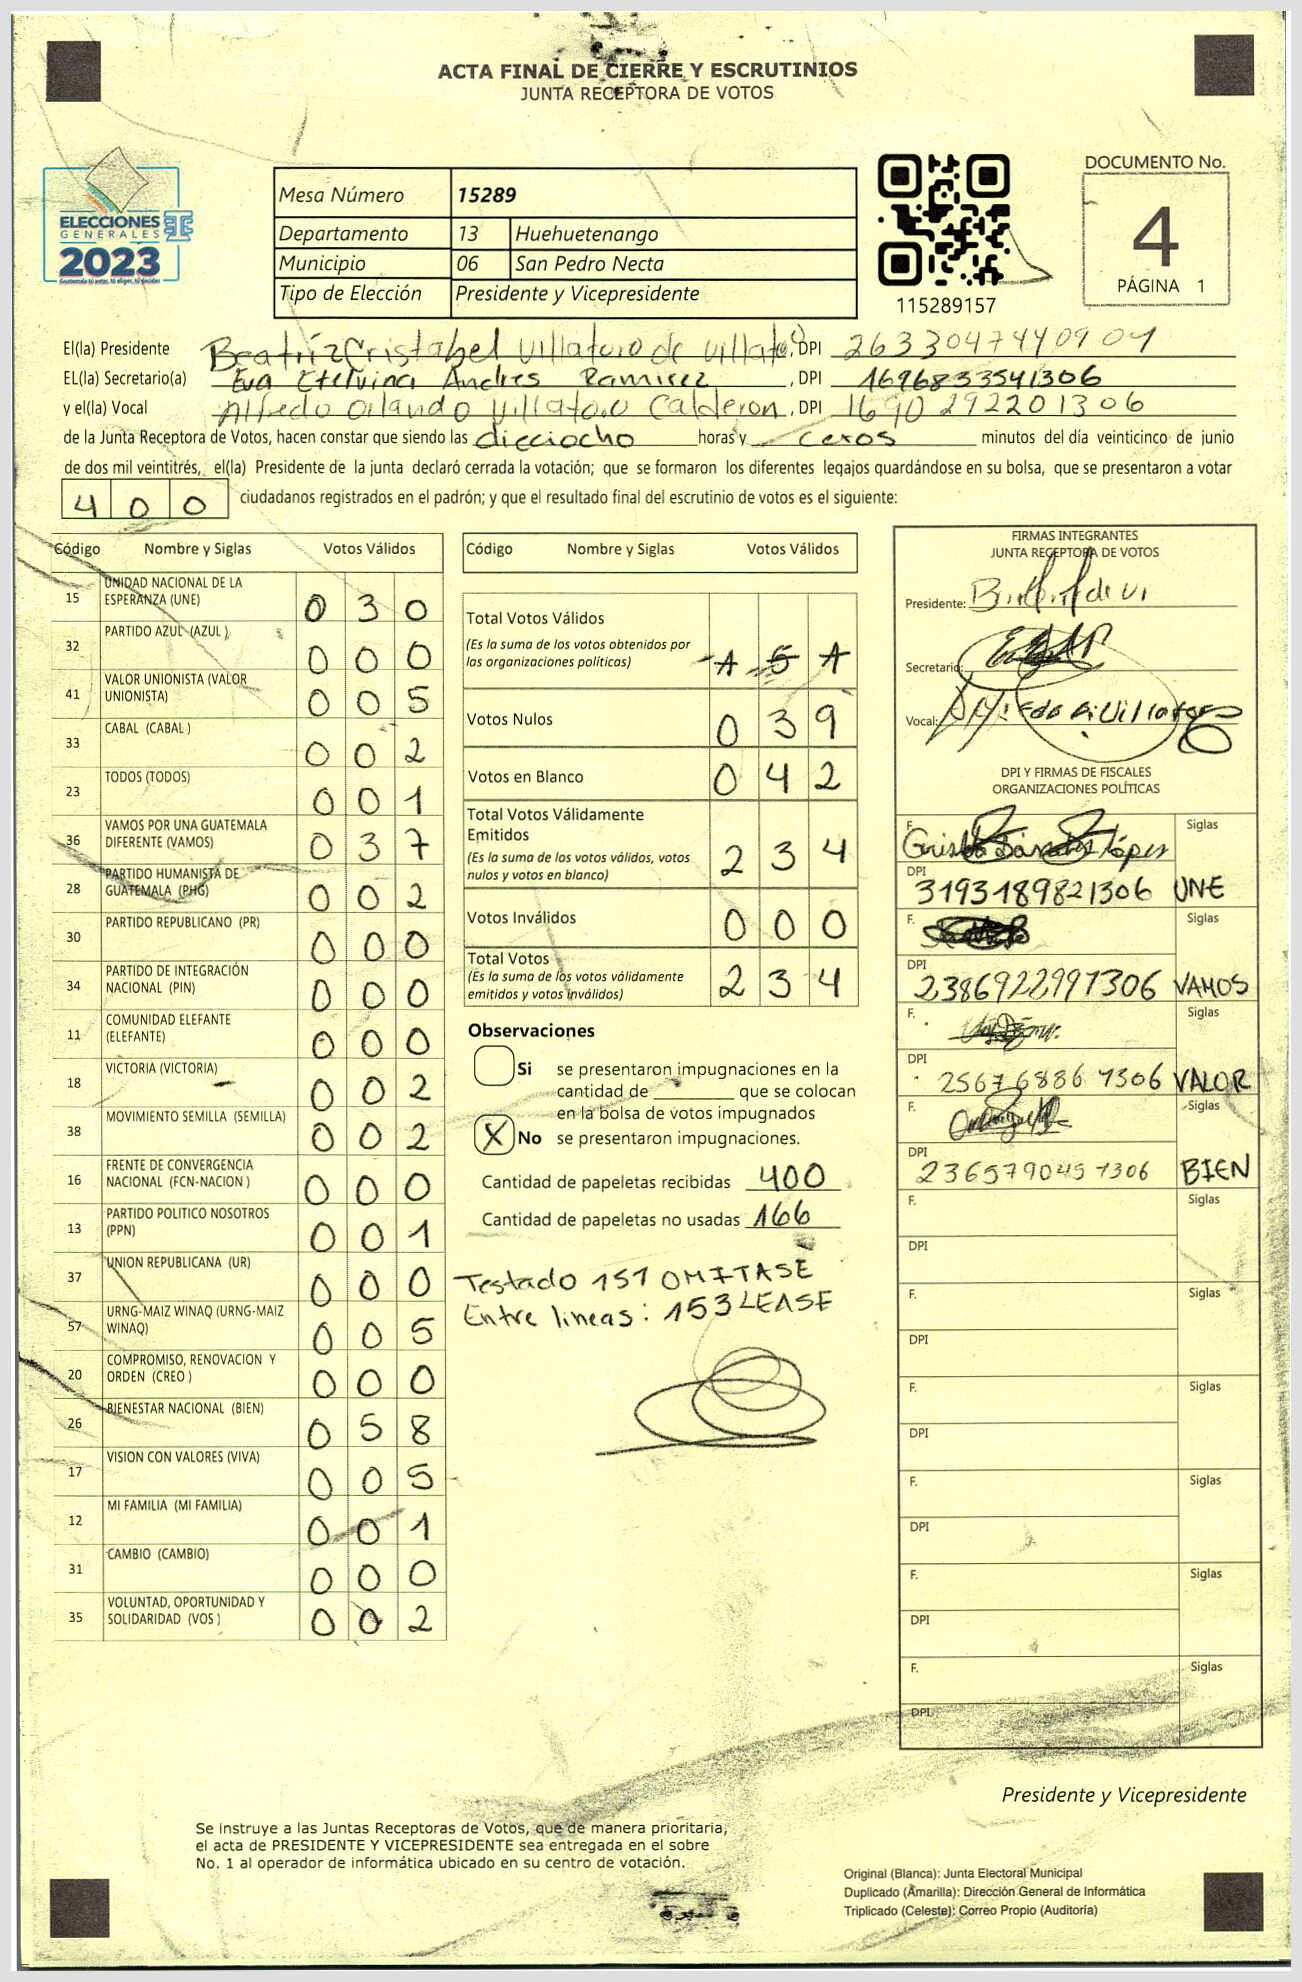 ACTA FINAL DE CIERRE Y ESCRUTINIOS
JUNTA RECEPTORA DE VOTOS
ELECCIONES
GENERALES
2023
Mesa Número 15289
Departamento 13 Huehuetenango
Municipio 06 San Pedro Necta
Tipo de Elección Presidente y Vicepresidente
115289157
DOCUMENTO No.
4
PÁGINA 1
El(la) Presidente Beatríz Cristabel Villatoro de Villatoro, DPI 2633047440901
EL(la) Secretario(a) Eva Etelvina Andres Ramirez, DPI 1696833541306
y el(la) Vocal Alfredo Orlando Villatoro Calderon, DPI 1690292201306
de la Junta Receptora de Votos, hacen constar que siendo las dieciocho horas y ceros minutos del día veinticinco de junio
de dos mil veintitrés, el(la) Presidente de la junta declaró cerrada la votación; que se formaron los diferentes legajos guardándose en su bolsa, que se presentaron a votar
400 ciudadanos registrados en el padrón; y que el resultado final del escrutinio de votos es el siguiente:
Código Nombre y Siglas Votos Válidos
15 UNIDAD NACIONAL DE LA ESPERANZA (UNE) 030
32 PARTIDO AZUL (AZUL ) 000
41 VALOR UNIONISTA (VALOR UNIONISTA) 005
33 CABAL (CABAL ) 002
23 TODOS (TODOS) 001
36 VAMOS POR UNA GUATEMALA DIFERENTE (VAMOS) 037
28 PARTIDO HUMANISTA DE GUATEMALA (PHG) 002
30 PARTIDO REPUBLICANO (PR) 000
34 PARTIDO DE INTEGRACIÓN NACIONAL (PIN) 000
11 COMUNIDAD ELEFANTE (ELEFANTE) 000
18 VICTORIA (VICTORIA) 002
38 MOVIMIENTO SEMILLA (SEMILLA) 002
16 FRENTE DE CONVERGENCIA NACIONAL (FCN-NACION ) 000
13 PARTIDO POLITICO NOSOTROS (PPN) 001
37 UNION REPUBLICANA (UR) 000
57 URNG-MAIZ WINAQ (URNG-MAIZ WINAQ) 005
20 COMPROMISO, RENOVACION Y ORDEN (CREO ) 000
26 BIENESTAR NACIONAL (BIEN) 058
17 VISION CON VALORES (VIVA) 005
12 MI FAMILIA (MI FAMILIA) 001
31 CAMBIO (CAMBIO) 000
35 VOLUNTAD, OPORTUNIDAD Y SOLIDARIDAD (VOS ) 002
Código Nombre y Siglas Votos Válidos
Total Votos Válidos
(Es la suma de los votos obtenidos por
las organizaciones políticas) 151
Votos Nulos 039
Votos en Blanco 042
Total Votos Válidamente
Emitidos
(Es la suma de los votos válidos, votos
nulos y votos en blanco) 234
Votos Inválidos 000
Total Votos
(Es la suma de los votos válidamente
emitidos y votos inválidos) 234
Observaciones
Si se presentaron impugnaciones en la
cantidad de ________ que se colocan
en la bolsa de votos impugnados
X No se presentaron impugnaciones.
Cantidad de papeletas recibidas 400
Cantidad de papeletas no usadas 166
Testado 151 OMITASE
Entre lineas: 153 LEASE
FIRMAS INTEGRANTES
JUNTA RECEPTORA DE VOTOS
Presidente:
Secretario:
Vocal:
DPI Y FIRMAS DE FISCALES
ORGANIZACIONES POLÍTICAS
F. Siglas
DPI 3193189821306 UNE
F. Siglas
DPI 2386922991306 VAMOS
F. Siglas
DPI 2567688671306 VALOR
F. Siglas
DPI 2365790451306 BIEN
F. Siglas
DPI
F. Siglas
DPI
F. Siglas
DPI
F. Siglas
DPI
F. Siglas
DPI
F. Siglas
DPI
Presidente y Vicepresidente
Se instruye a las Juntas Receptoras de Votos, que de manera prioritaria,
el acta de PRESIDENTE Y VICEPRESIDENTE sea entregada en el sobre
No. 1 al operador de informática ubicado en su centro de votación.
Original (Blanca): Junta Electoral Municipal
Duplicado (Amarilla): Dirección General de Informática
Triplicado (Celeste): Correo Propio (Auditoría)